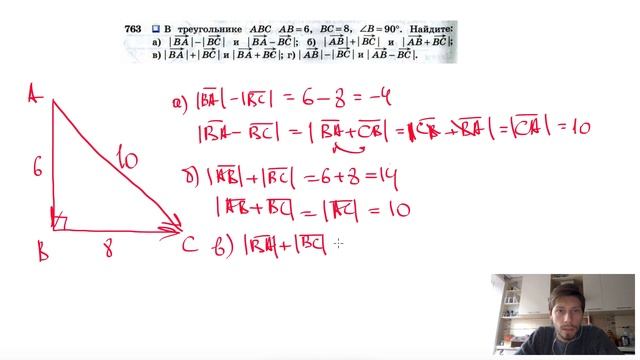 763 В треугольнике ABC AB=6, BC=8, ∠B=90°. Найдите:
а) |BA|−|BC| и |BA−BC|; б) |AB|+|BC| и |AB+BC|;
в) |BA|+|BC| и |BA+BC|; г) |AB|−|BC| и |AB−BC|.
A
а) |BA|−|BC| = 6−8 = −4
|BA−BC| = |BA+CB| = |CB+BA| = |CA| = 10
6
10
б) |AB|+|BC| = 6+8 = 14
|AB+BC| = |AC| = 10
B
8
C
в) |BA|+|BC|